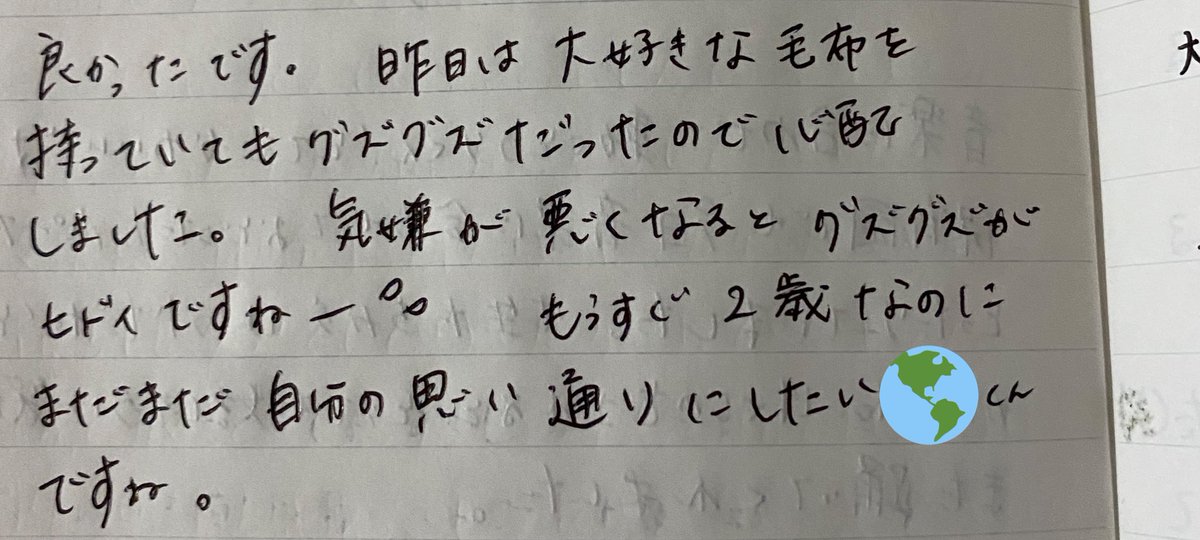 良かったです。 昨日は 大好きな毛布を
持っていてもグズグズだったので心配
しました。 気嫌が悪くなるとグズグズが
ヒドイですねー。。 もうすぐ2歳なのに
まだまだ自分の思い通りにしたい🌎くん
ですね。
大